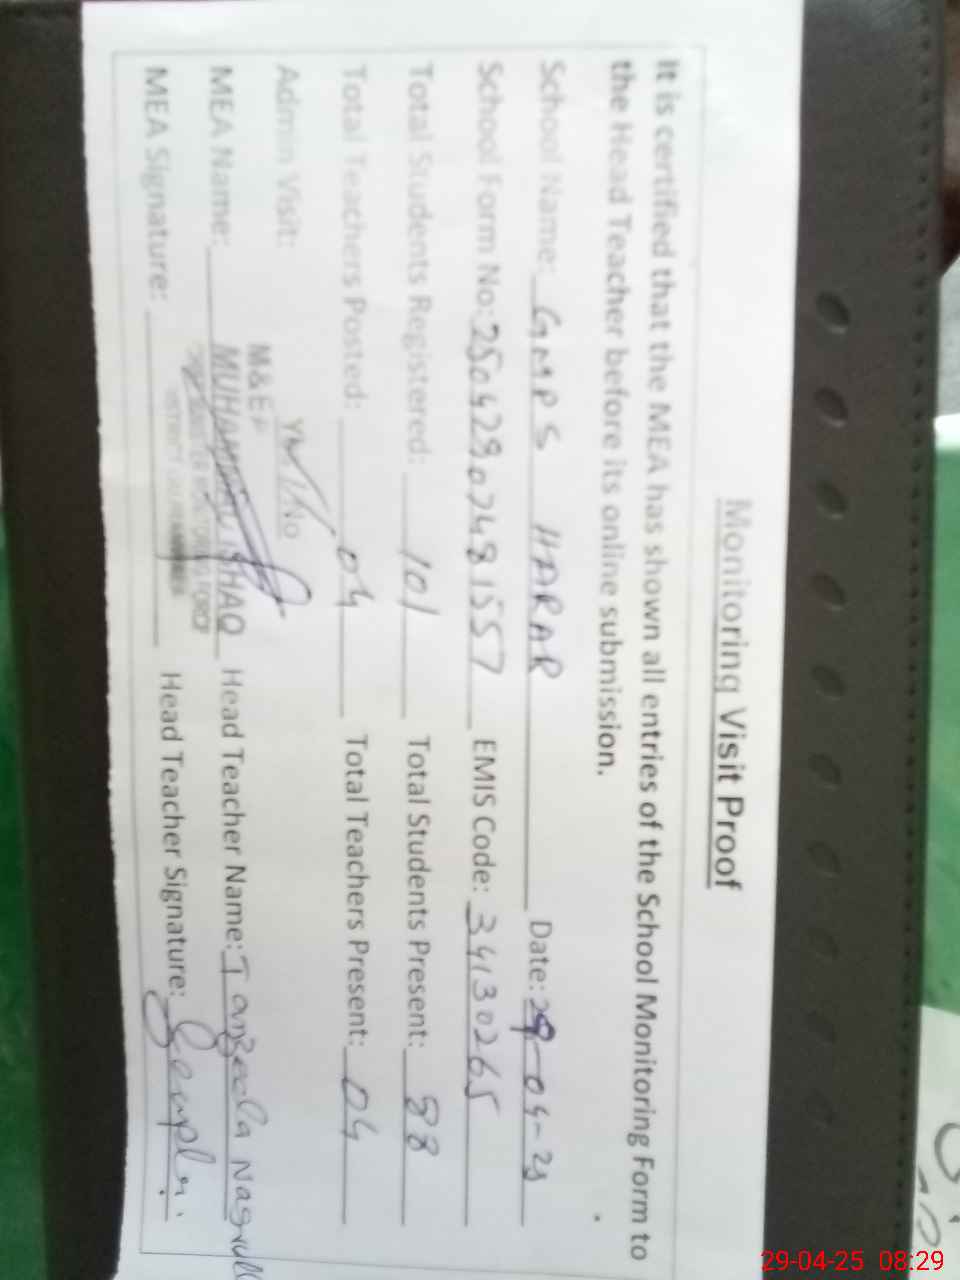 Monitoring Visit Proof
It is certified that the MEA has shown all entries of the School Monitoring Form to
the Head Teacher before its online submission.
School Name: GMPS HARAR Date: 29-04-25
School Form No: 25042907481557 EMIS Code: 34130265
Total Students Registered: 101 Total Students Present: 88
Total Teachers Posted: 04 Total Teachers Present: 04
Admin Visit: Yes/No
M&E
MEA Name: MUHAMMAD ISHAQ Head Teacher Name: Tanzeela
MEA Signature: Head Teacher Signature:
29-04-25 08:29